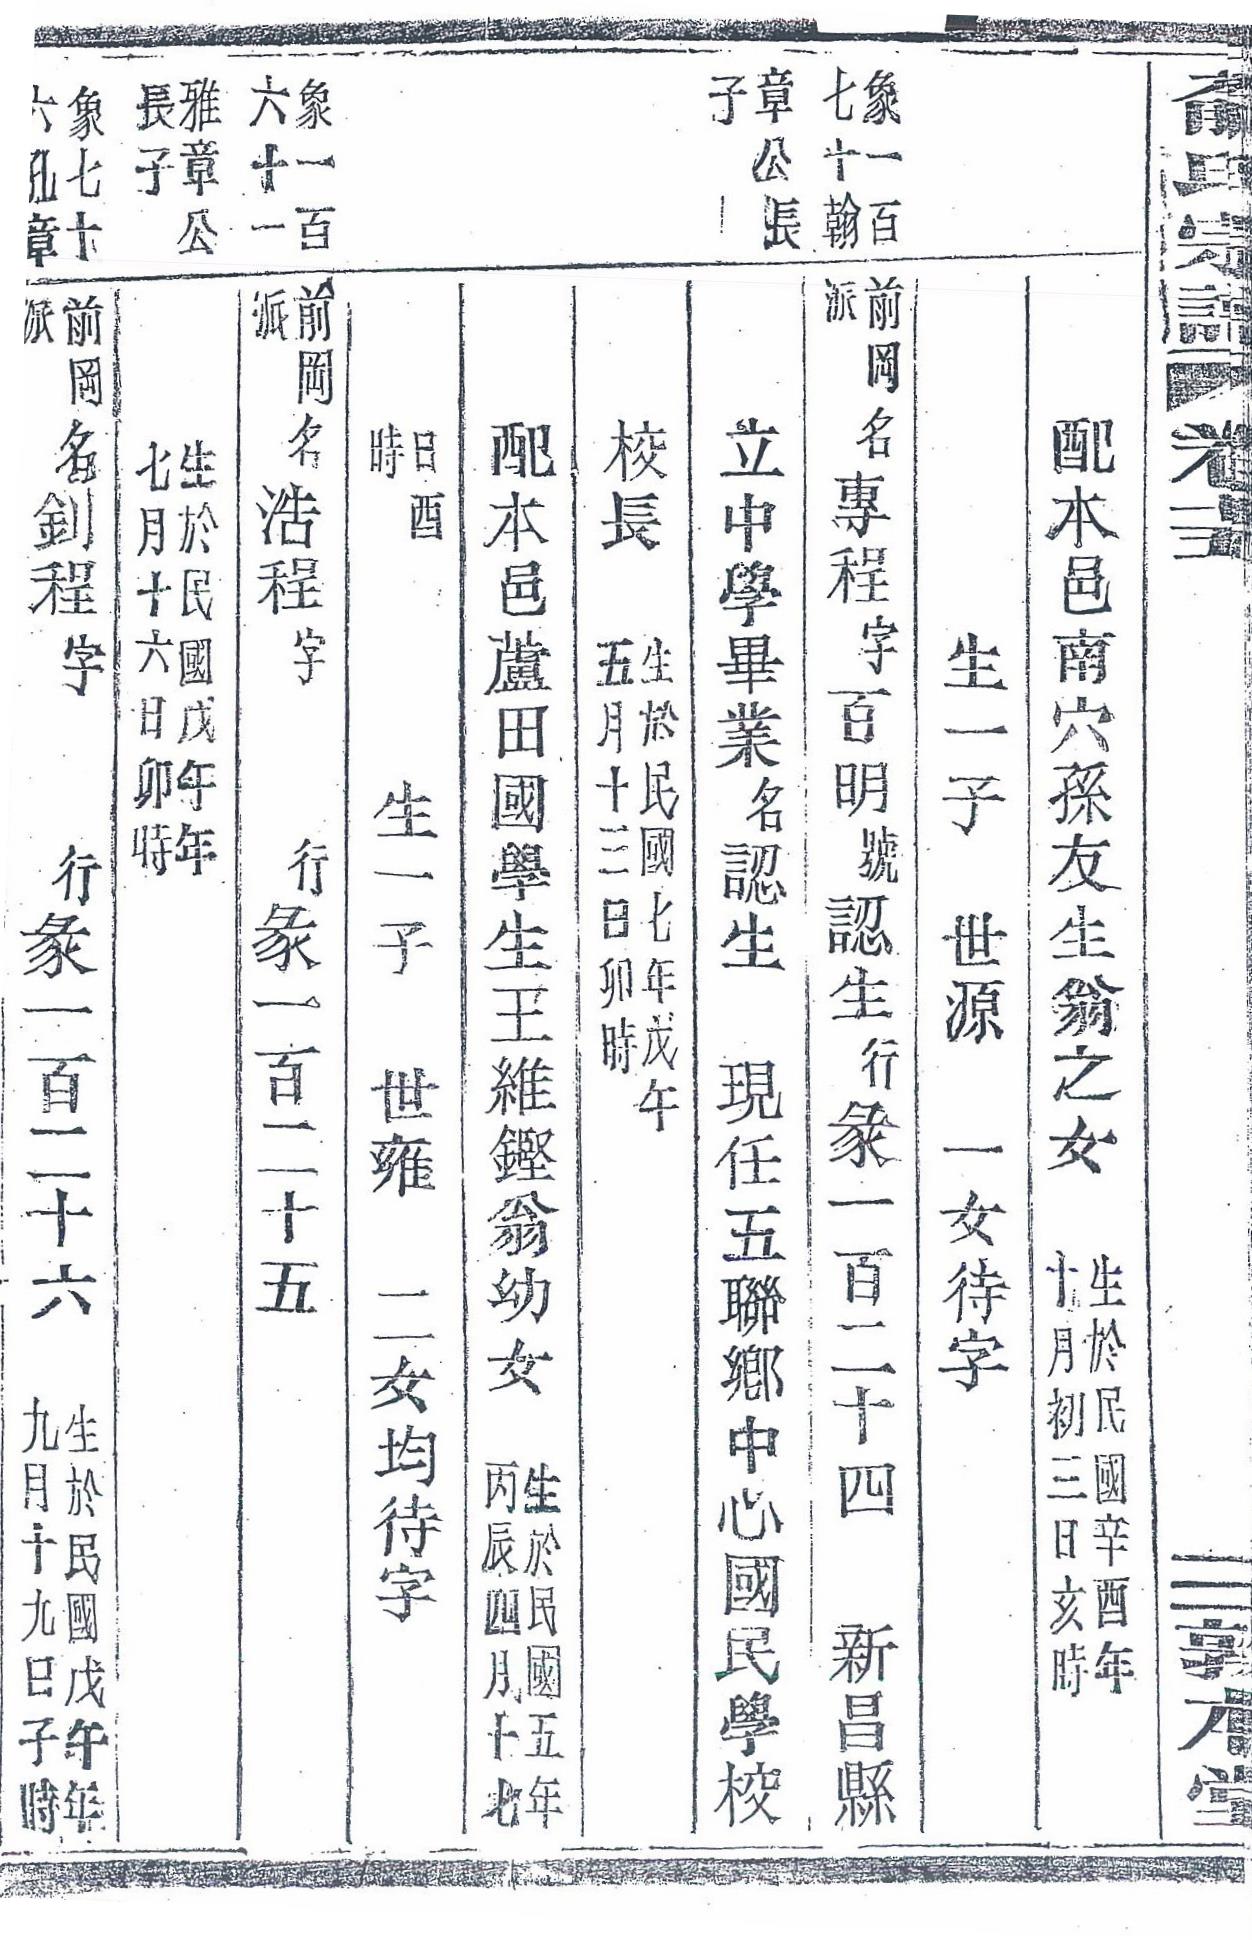 俞氏宗譜 卷二
三 敦本堂
配本邑南穴孫友生翁之女 生於民國辛酉年
十月初三日亥時
生一子 世源 一女待字
象一百
七十翰
章公長
子
前岡
派
名專程字百明號認生行彖一百二十四 新昌縣
立中學畢業名認生 現任五聯鄉中心國民學校
校長 生於民國七年戊午
五月十三日卯時
配本邑蘆田國學生王維鏗翁幼女 生於民國五年
丙辰四月十七
日酉
時
生一子 世雍 二女均待字
象一百
六十一
雅章公
長子
前岡
派
名浩程字 行彖一百二十五
生於民國戊午年
七月十六日卯時
象七十
六虬章
前岡
派
名釗程字 行彖一百二十六 生於民國戊午年
九月十九日子時